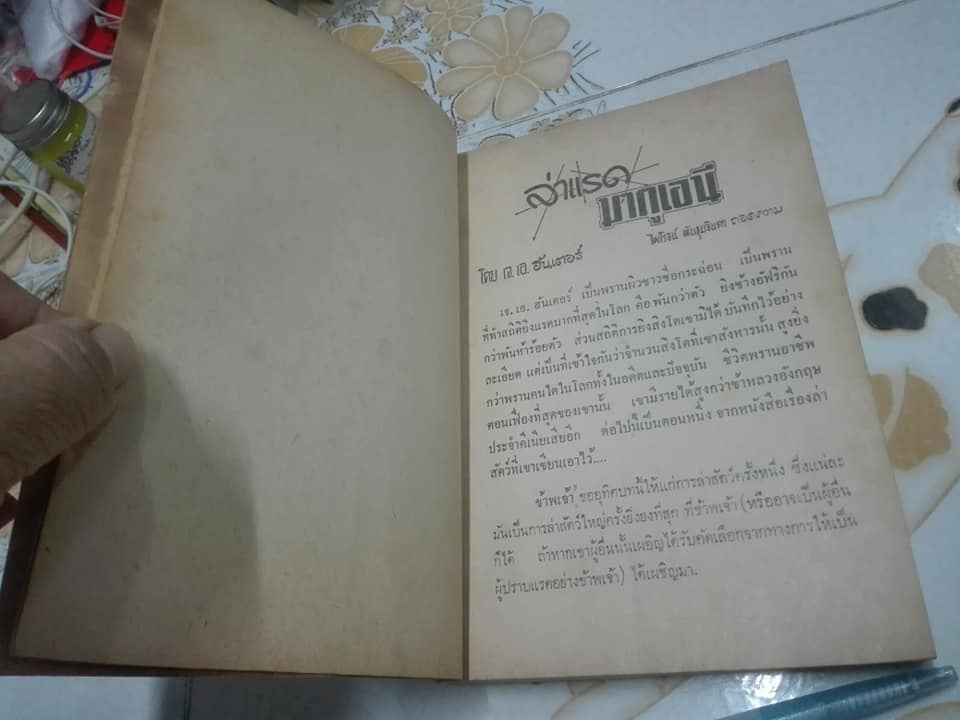 ล่าแรด
มากูเอนี
ถอดความ
โดย เจ. เอ. ฮันเตอร์
เจ. เอ. ฮันเตอร์ เป็นพรานผิวขาวชื่อกระฉ่อน เป็นพราน
ที่ทำสถิติยิงแรดมากที่สุดในโลก คือพันกว่าตัว ยิงช้างอัฟริกัน
กว่าพันห้าร้อยตัว ส่วนสถิติการยิงสิงโตเขามิได้บันทึกไว้อย่าง
ละเอียด แต่เป็นที่เข้าใจกันว่าจำนวนสิงโตที่เขาสังหารนั้น สูงยิ่ง
กว่าพรานคนใดในโลกทั้งในอดีตและปัจจุบัน ชีวิตพรานอาชีพ
ตอนเฟื่องที่สุดของเขานั้น เขามีรายได้สูงกว่าข้าหลวงอังกฤษ
ประจำคีเนียเสียอีก ต่อไปนี้เป็นตอนหนึ่ง จากหนังสือเรื่องล่า
สัตว์ที่เขาเขียนเอาไว้....
ข้าพเจ้า ขออุทิศบทนี้ให้แก่การล่าสัตว์ครั้งหนึ่ง ซึ่งแน่ละ
มันเป็นการล่าสัตว์ใหญ่ครั้งยิ่งยงที่สุด ที่ข้าพเจ้า (หรืออาจเป็นผู้อื่น
ก็ได้ ถ้าหากเขาผู้อื่นนั้นเผอิญได้รับคัดเลือกจากทางการให้เป็น
ผู้ปราบแรดอย่างข้าพเจ้า) ได้เผชิญมา.